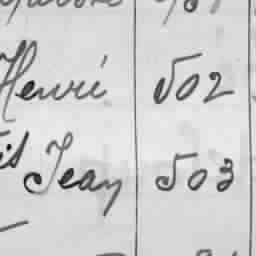 Henri 502
Jean 503